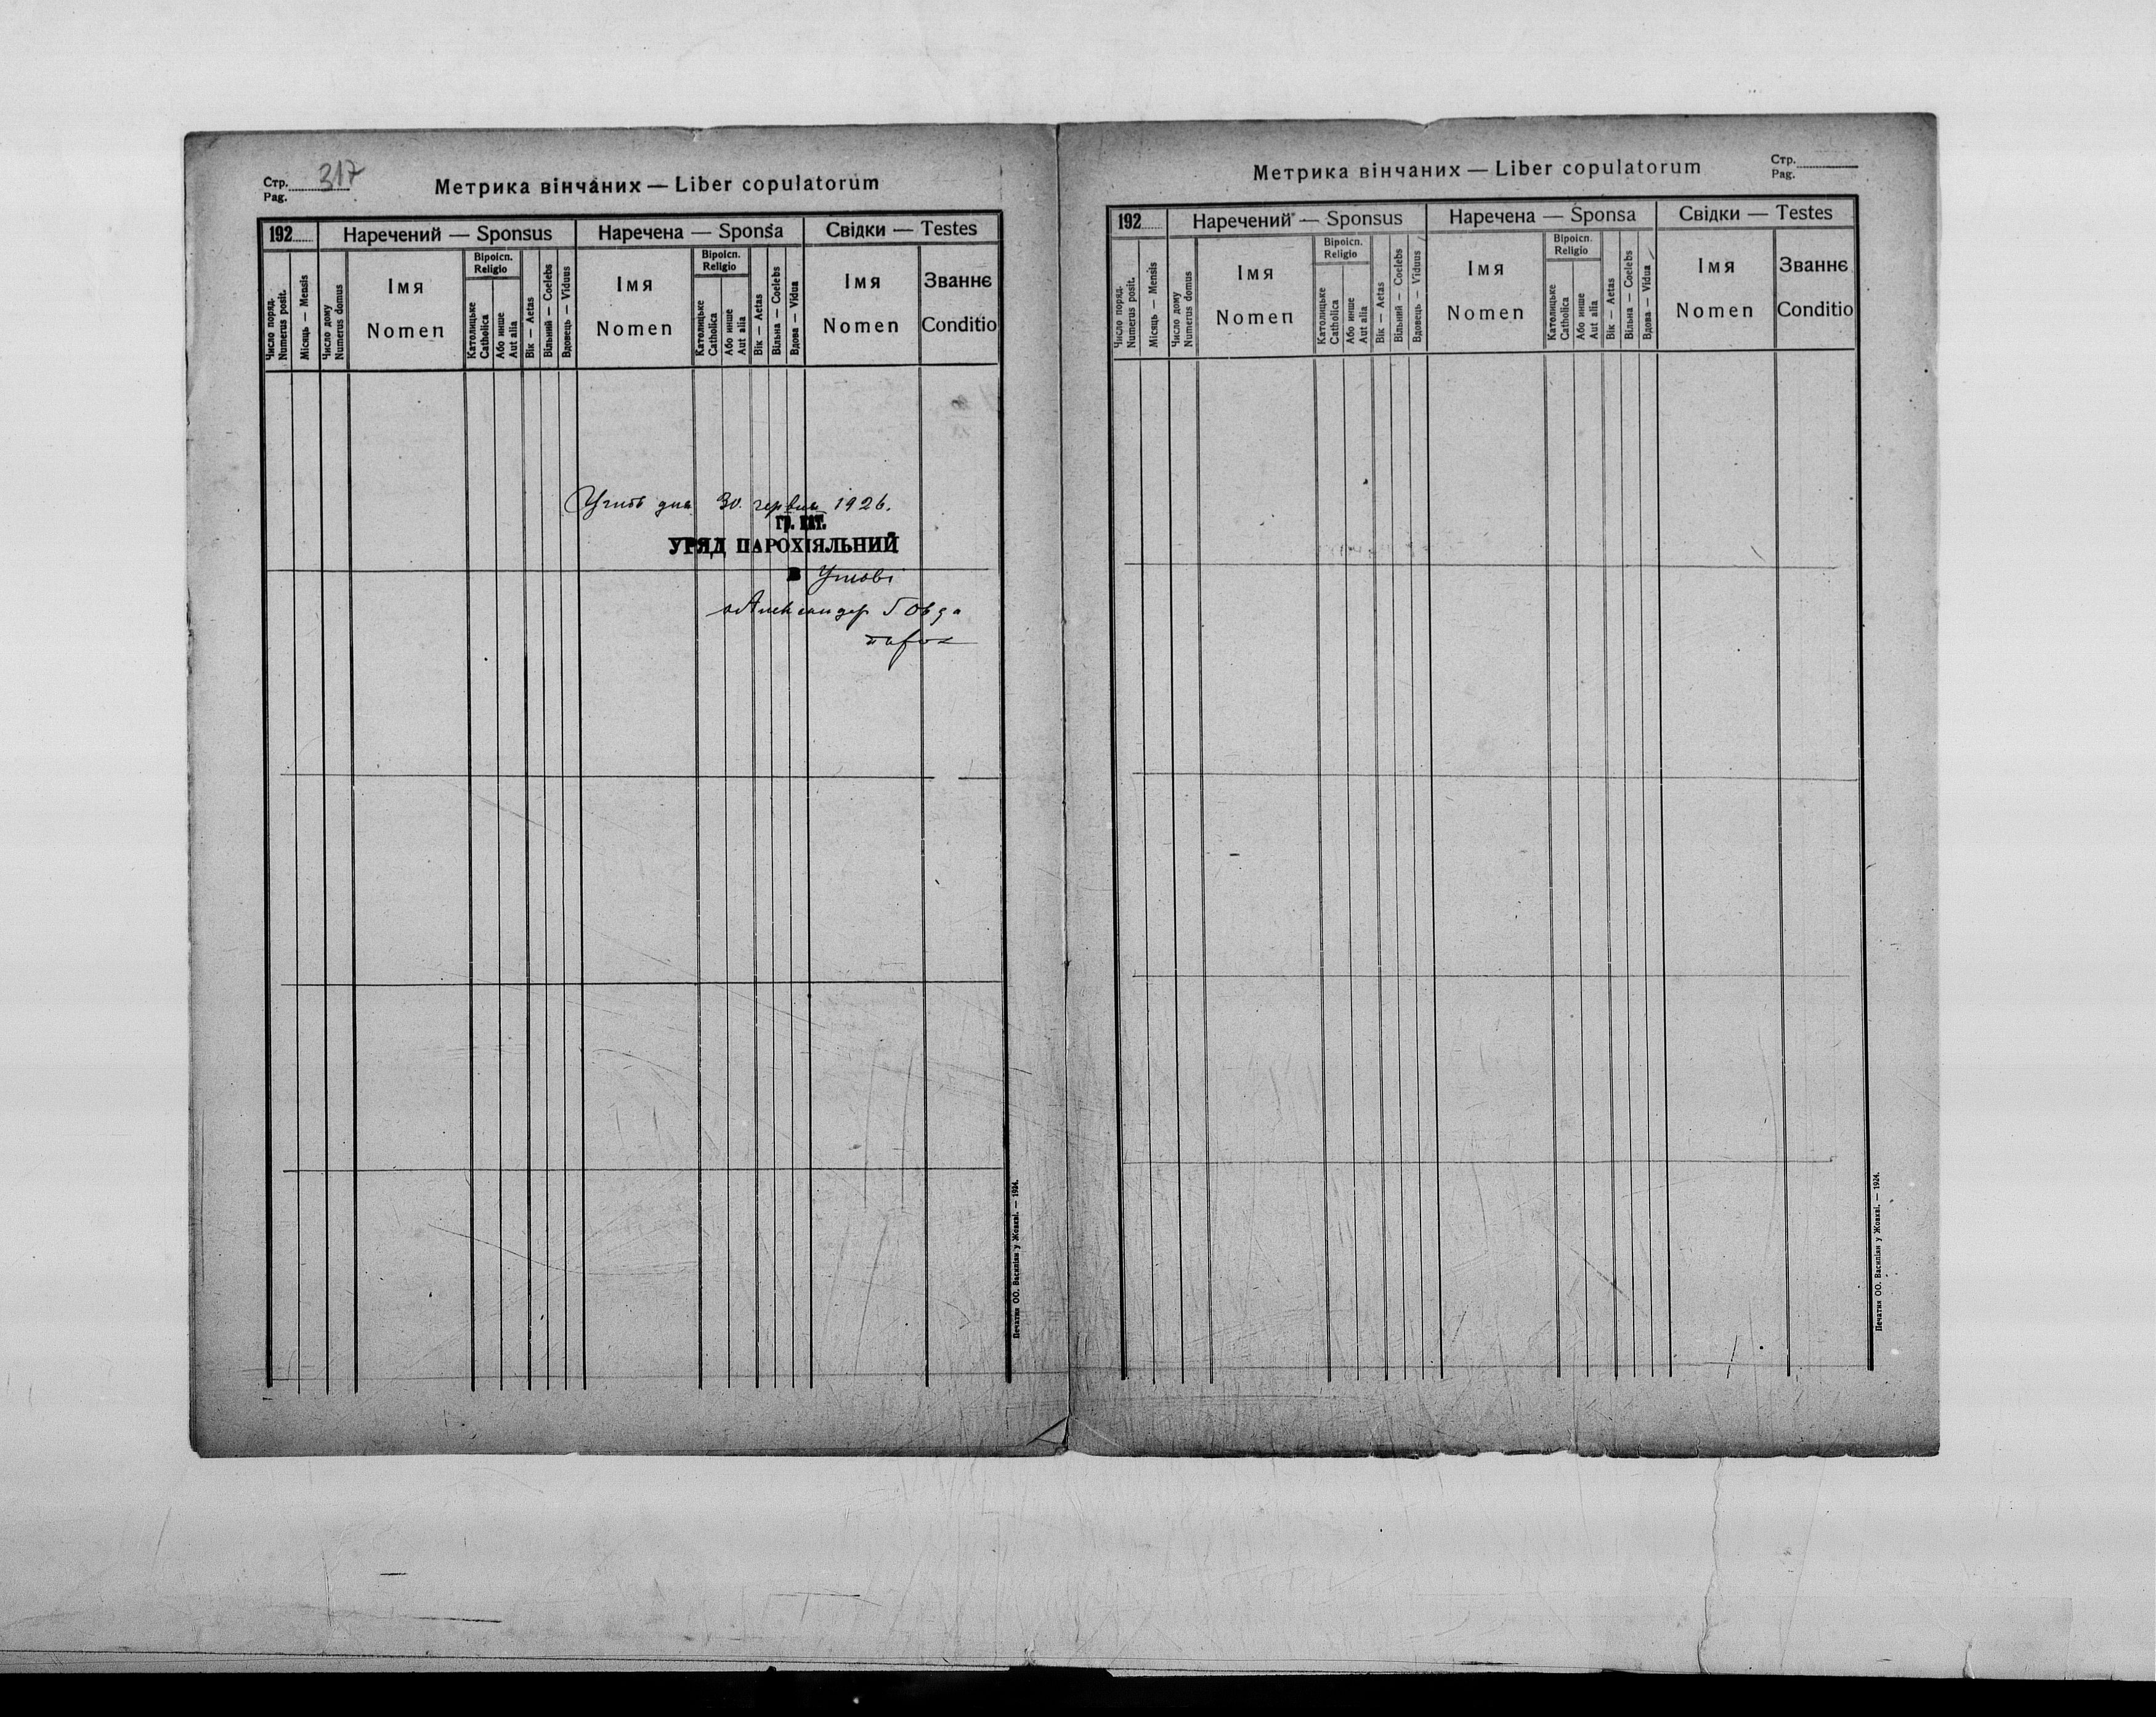 Стр. 317
Pag.
Метрика вінчаних — Liber copulatorum
192
Наречений — Sponsus
Наречена — Sponsa
Свідки — Testes
Число поряд.
Numerus posit.
Місяць — Mensis
Число дому
Numerus domus
Імя
Nomen
Віроісп.
Religio
Католицьке
Catholica
Або инше
Aut alia
Вік — Aetas
Вільний — Coelebs
Вдовець — Viduus
Імя
Nomen
Віроісп.
Religio
Католицьке
Catholica
Або инше
Aut alia
Вік — Aetas
Вільна — Coelebs
Вдова — Vidua
Імя
Nomen
Званнє
Conditio
дня 30. червня 1926.
ГР. КАТ.
УРЯД ПАРОХІЯЛЬНИЙ
в
Александер
парох
Печатня ОО. Василіян у Жовкві. — 1924.
Метрика вінчаних — Liber copulatorum
Стр.
Pag.
192
Наречений — Sponsus
Наречена — Sponsa
Свідки — Testes
Число поряд.
Numerus posit.
Місяць — Mensis
Число дому
Numerus domus
Імя
Nomen
Віроісп.
Religio
Католицьке
Catholica
Або инше
Aut alia
Вік — Aetas
Вільний — Coelebs
Вдовець — Viduus
Імя
Nomen
Віроісп.
Religio
Католицьке
Catholica
Або инше
Aut alia
Вік — Aetas
Вільна — Coelebs
Вдова — Vidua
Імя
Nomen
Званнє
Conditio
Печатня ОО. Василіян у Жовкві. — 1924.